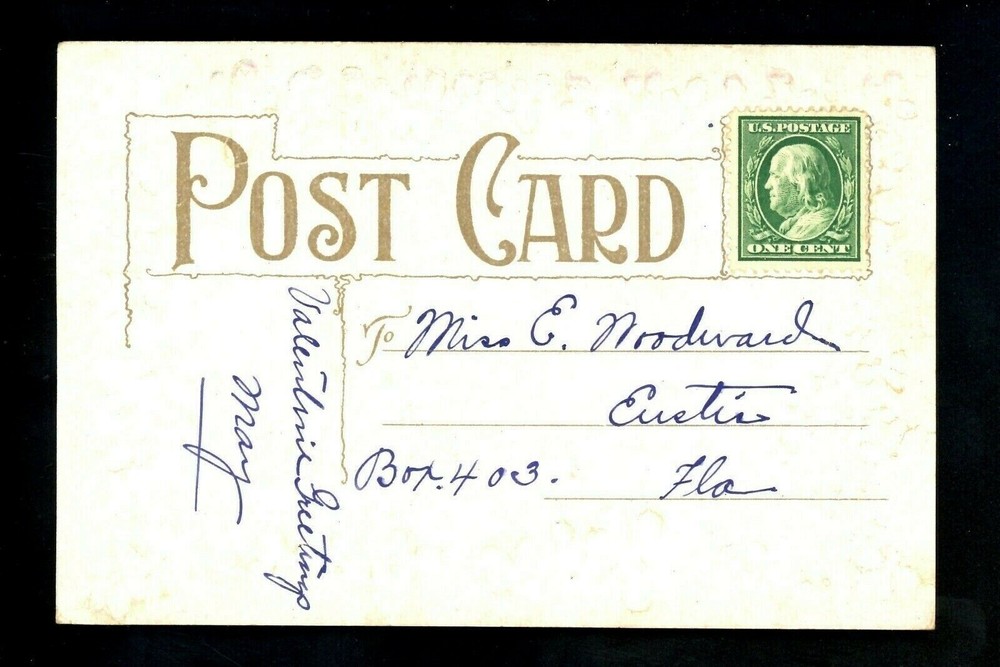 POST CARD
U.S. POSTAGE
ONE CENT
To Miss E. Woodward
Eustis
Box. 403. Fla
Valentine Greetings
May